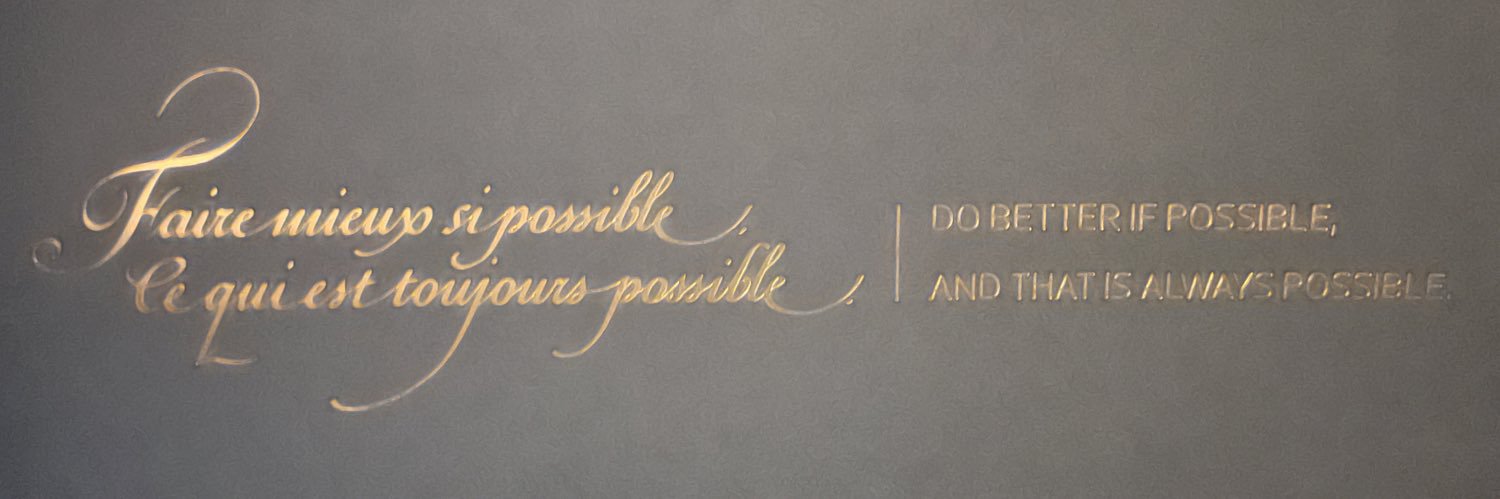 Faire mieux si possible,
Ce qui est toujours possible.
DO BETTER IF POSSIBLE,
AND THAT IS ALWAYS POSSIBLE.